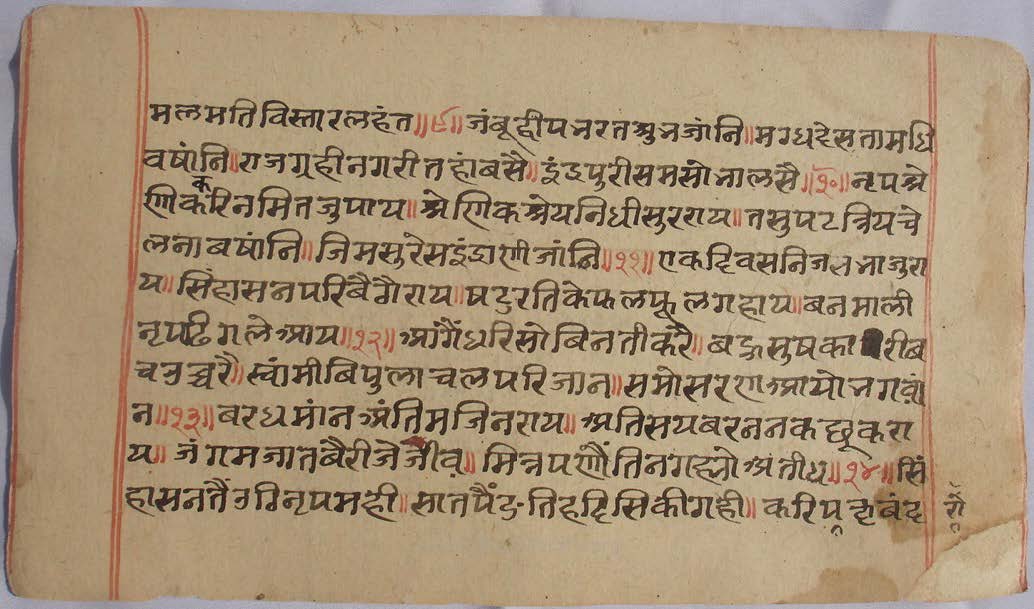 मलमतिविस्तारलहंत॥९॥जंबूद्वीपभरतशुभजांनि॥मगधदेसतामधि
वषांनि॥राजगृहीनगरीतहांबसै॥इंद्रपुरीसमसोभालसै॥१०॥नृपश्रे
णिकरिनमितजुपाय॥श्रेणिकश्रेयनिधीसुरराय॥तसुपटत्रियचे
लनाबषांनि॥जिमसुरेसइंद्राणीजांनि॥११॥एकदिवसनिजसभाजुरा
य॥सिंहासनपरिबैठैराय॥षटुरतिकेफलफूलगहाय॥बनमाली
नृपढिगलेआय॥१२॥आगैंधरिसोबिनतीकरै॥बहुसुषका रीब
चउच्चरै॥स्वांमीबिपुलाचलपरिजान॥समोसरणआयोभगवां
न॥१३॥बरधमांनअंतिमजिनराय॥अतिसयबरनन
य॥जंगमजातबैरीजेजीव॥मित्रपणौंतिन ॥१४॥सिं
हासनतैंउठिनृपमही॥सातपैंडतिहदिसिकीगही॥करि